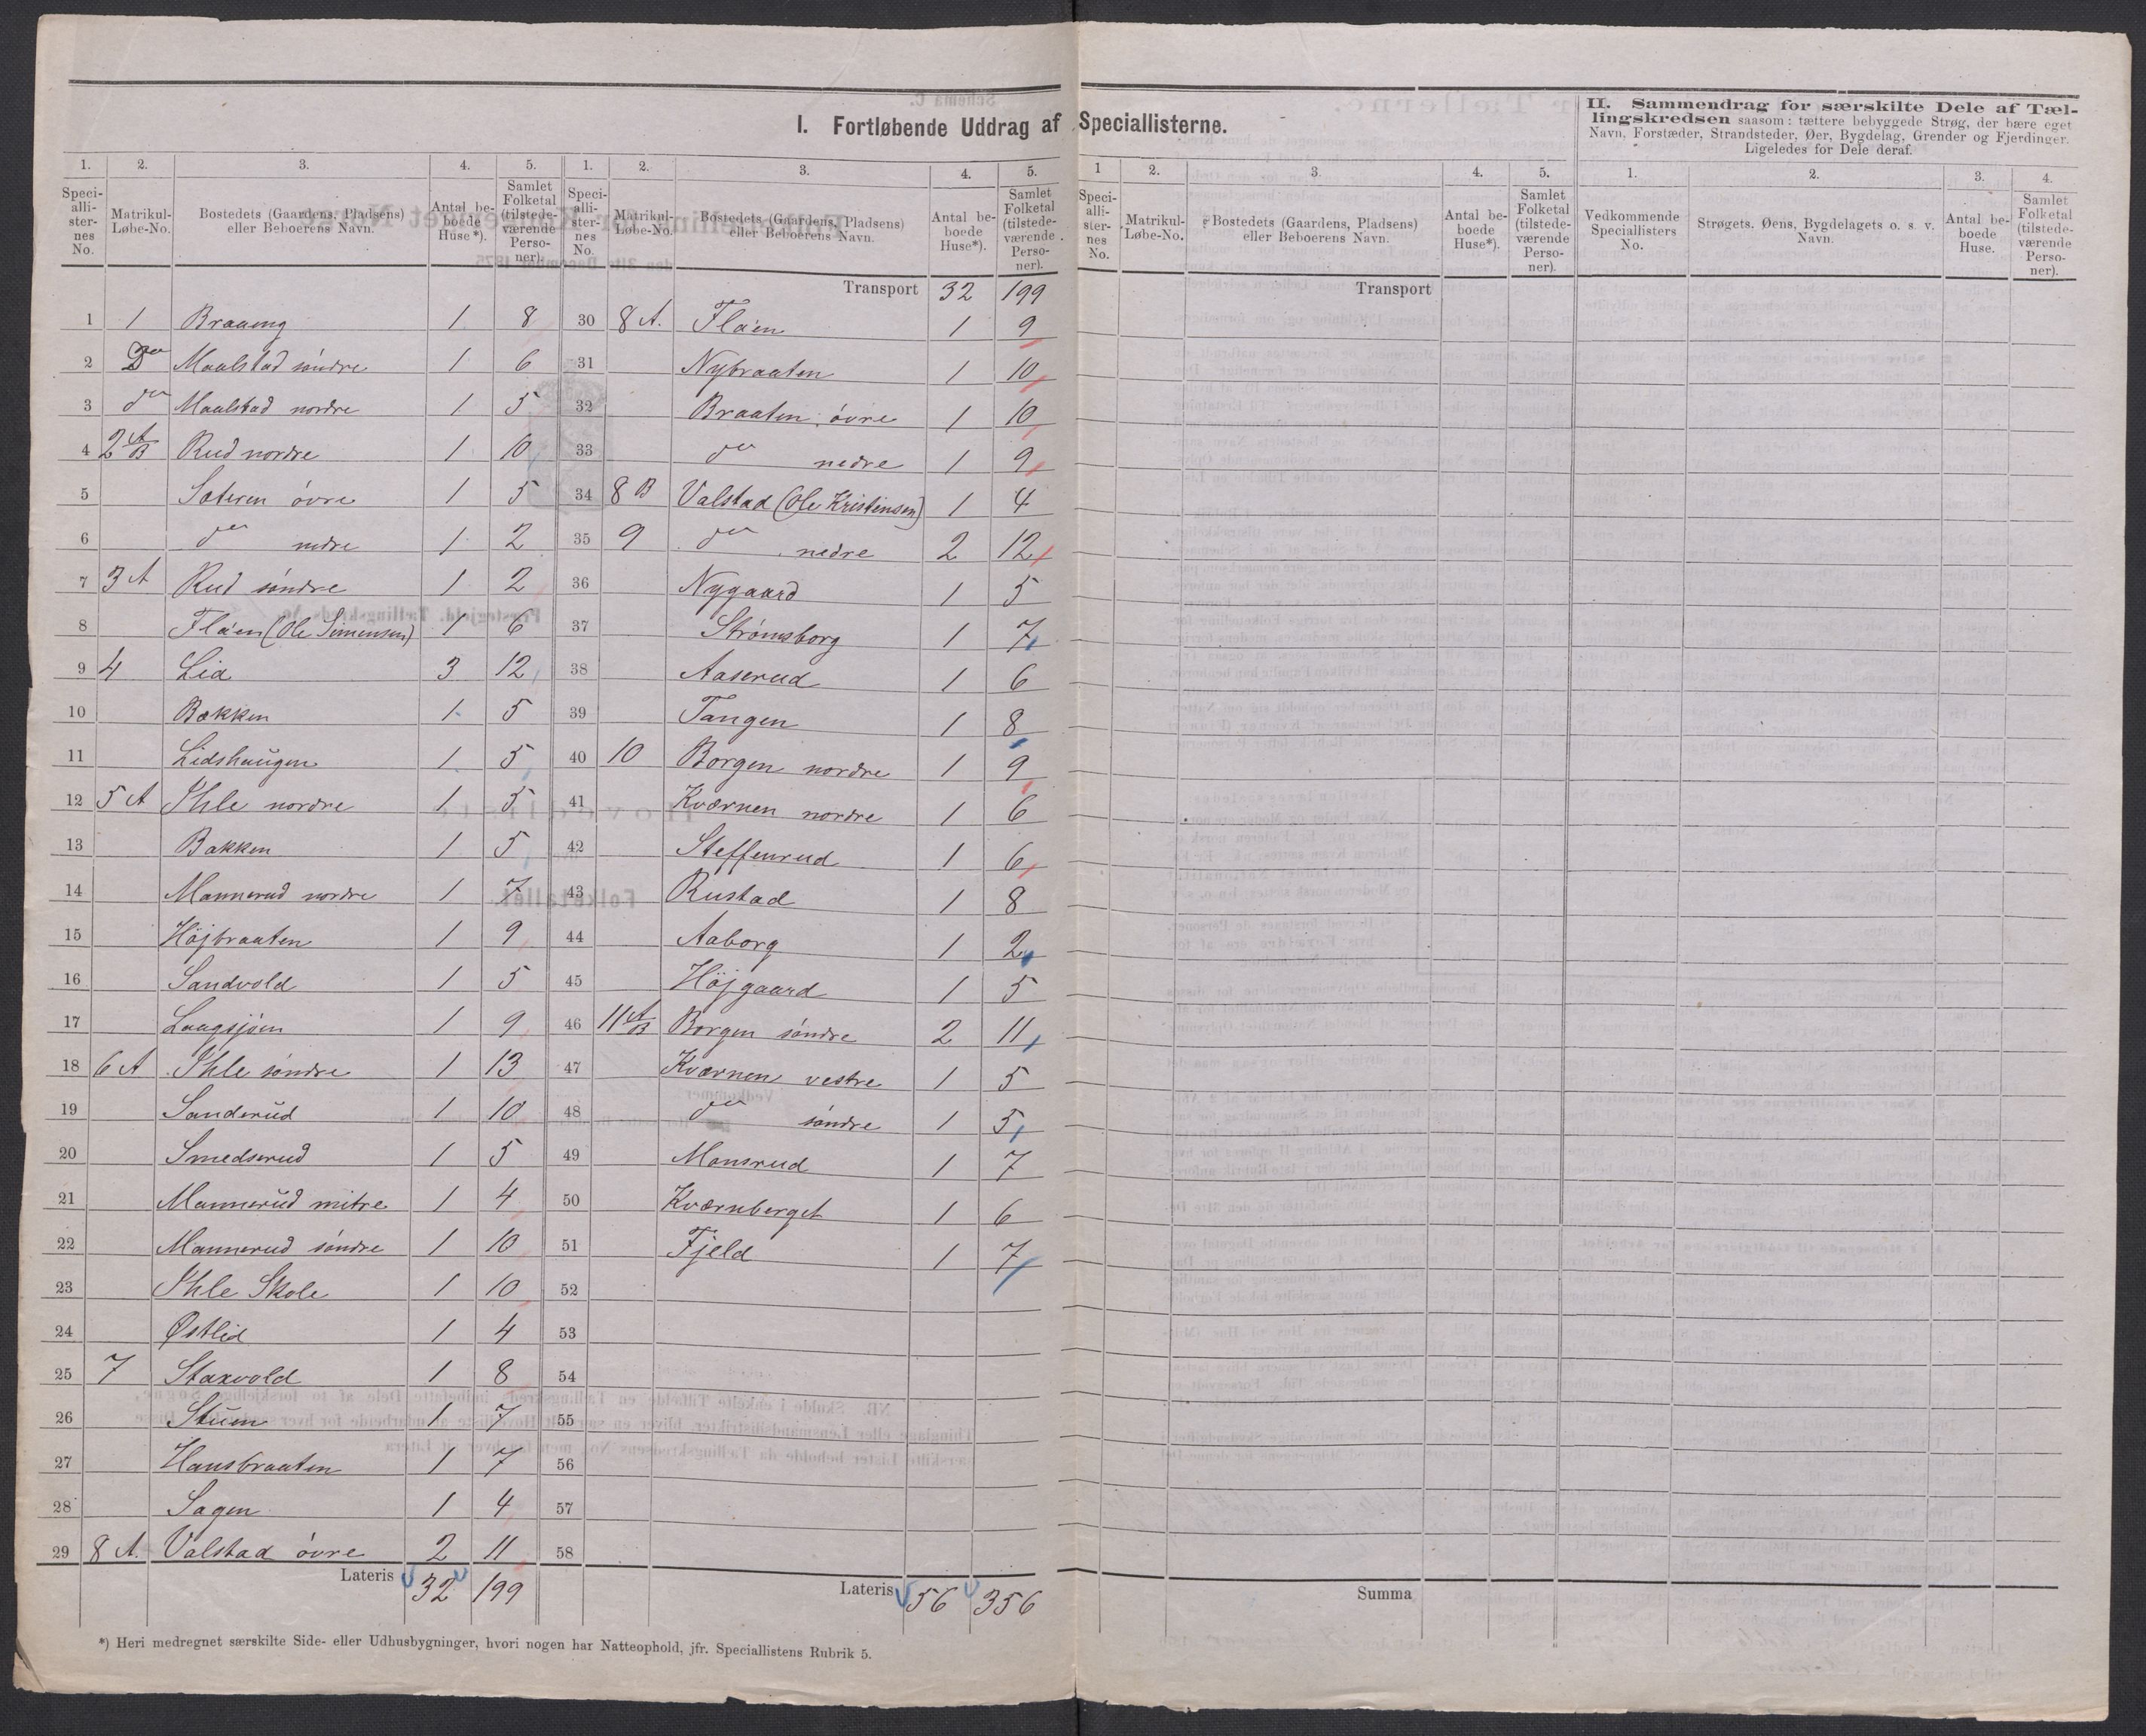 I. Fortløbende Uddrag af Speciallisterne.
1. 2. 3. 4. 5. 1. 2. 3. 4. 5.
Speci-alli-ster-nes No. Matrikul-Løbe-No. Bostedets (Gaardens, Pladsens) eller Beboerens Navn. Antal be-boede Huse*). Samlet Folketal (tilstede-værende Perso-ner). Speci-alli-ster-nes No. Matrikul-Løbe-No. Bostedets (Gaardens, Pladsens) eller Beboerens Navn. Antal be-boede Huse*). Samlet Folketal (tilstede-værende Perso-ner).
Transport 32 199
1 1 Braaeng 1 8
2 Do Maalstad söndre 1 6
3 do Maalstad nordre 1 5
4 2 A B Rud nordre 1 10
5 Sæteren övre 1 5
6 do nedre 1 2
7 3 A Rud söndre 1 2
8 Flåen (Ole Simensen) 1 6
9 4 Lia 3 12
10 Bækken 1 5
11 Lidshaugen 1 5
12 5 A Ihle nordre 1 5
13 Bakken 1 5
14 Mannerud nordre 1 7
15 Höjbraaten 1 9
16 Sandvold 1 5
17 Langsjöen 1 9
18 6 A Ihle söndre 1 13
19 Sanderud 1 10
20 Smedsrud 1 5
21 Mannerud mitre 1 4
22 Mannerud söndre 1 10
23 Ihle Skole 1 10
24 Østlid 1 4
25 7 Staxvold 1 8
26 Stuen 1 7
27 Hansbraaten 1 7
28 Sagen 1 4
29 8 A. Valstad övre 2 11
Lateris 32 199
30 8 A. Flåen 1 9
31 Nybraaten 1 10
32 Braaten övre 1 10
33 do nedre 1 9
34 8 B Valstad (Ole Kristensen) 1 4
35 9 do nedre 2 12
36 Nygaard 1 5
37 Strömsborg 1 7
38 Aaserud 1 6
39 Tangen 1 8
40 10 Borgen nordre 1 9
41 Kværnen nordre 1 6
42 Steffensrud 1 6
43 Rustad 1 8
44 Aaborg 1 2
45 Höjgaard 1 5
46 11 A B Borgen söndre 2 11
47 Kværnen vestre 1 5
48 do söndre 1 5
49 Monsrud 1 7
50 Kværnberget 1 6
51 Fjeld 1 7
52
53
54
55
56
57
58
Lateris 56 356
*) Heri medregnet særskilte Side- eller Udhusbygninger, hvori nogen har Natteophold, jfr. Speciallistens Rubrik 5.
1 2. 3. 4. 5.
Speci-alli-ster-nes No. Matrikul-Løbe-No. Bostedets (Gaardens, Pladsens) eller Beboerens Navn. Antal be-boede Huse*). Samlet Folketal (tilstede-værende Perso-ner).
Transport
Summa
II. Sammendrag for særskilte Dele af Tæl-
lingskredsen saasom: tættere bebyggede Strøg, der bære eget
Navn, Forstæder, Strandsteder, Øer, Bygdelag, Grender og Fjerdinger.
Ligeledes for Dele deraf.
1. 2. 3. 4.
Vedkommende Speciallisters No. Strøgets. Øens, Bygdelagets o. s. v. Navn. Antal be-boede Huse. Samlet Folketal (tilstede-værende Perso-ner).